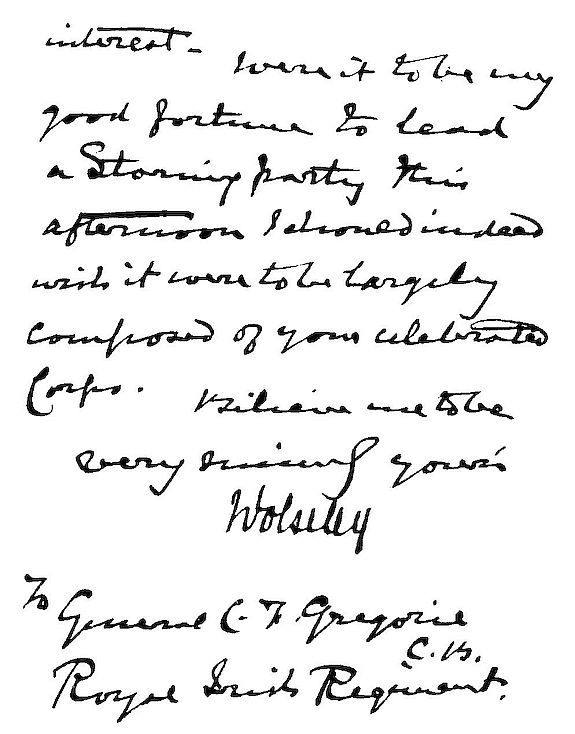 interest- Were it to be my
good fortune to lead
a Storming party this
afternoon I should indeed
wish it were to be largely
composed of your celebrated
Corps. Believe me to be
very sincerely yours
Wolseley
To General C. F. Gregorie
C.B.
Royal Irish Regiment.